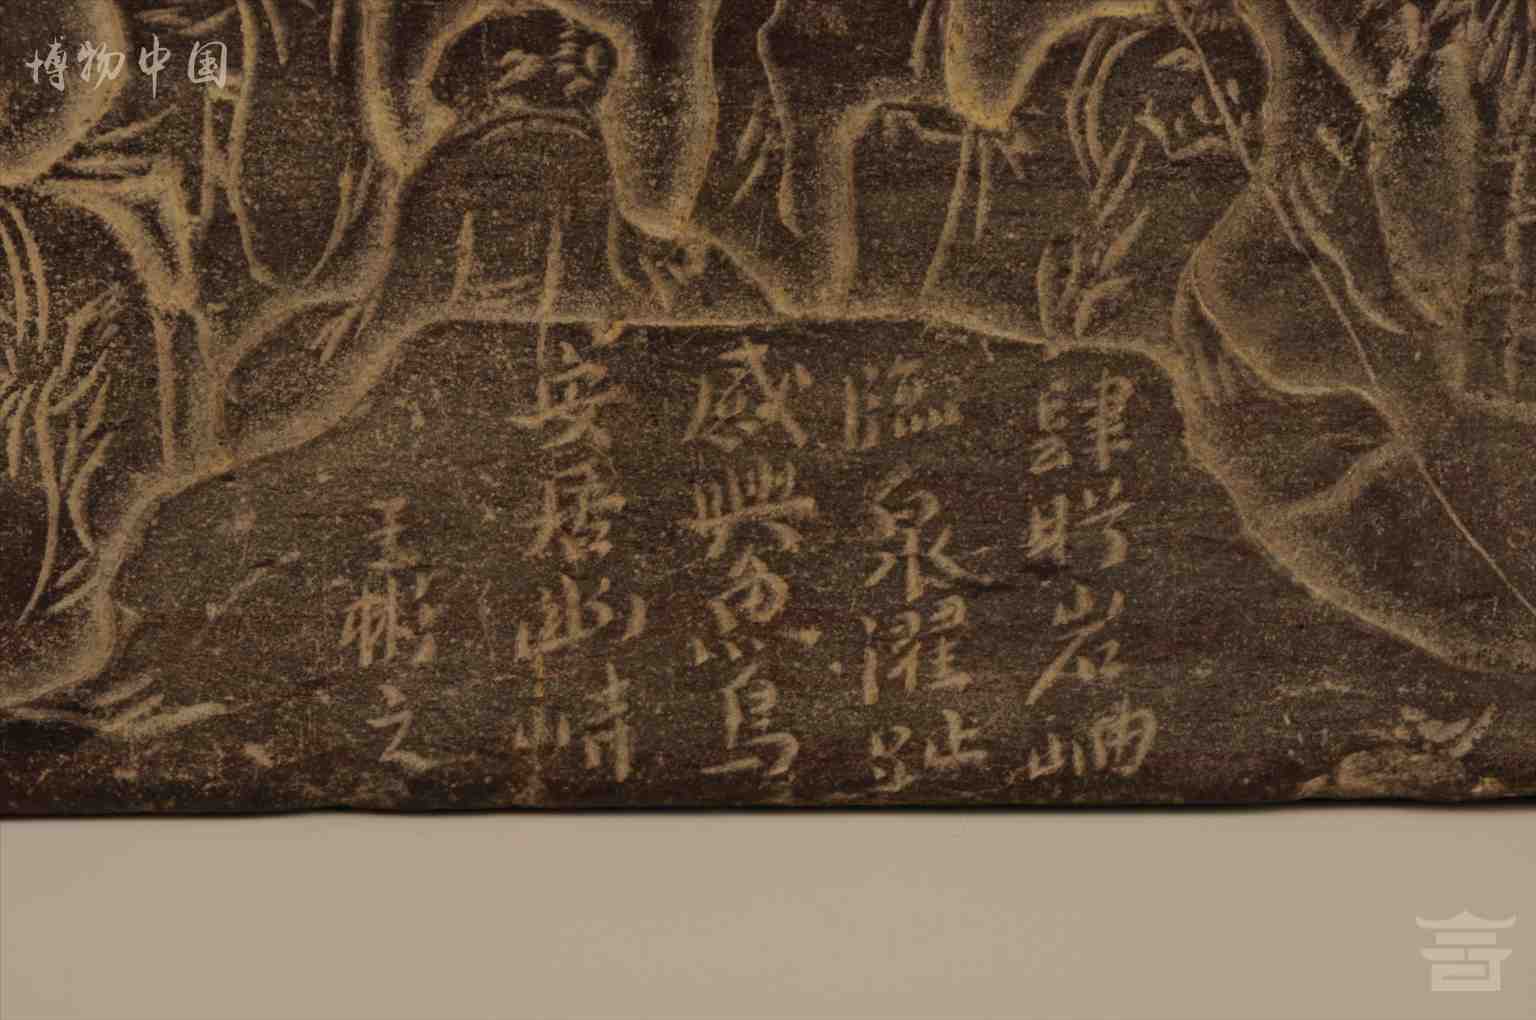 博物中国
肆盻岩岫
臨泉濯趾
感興魚鳥
安居幽峙
王彬之